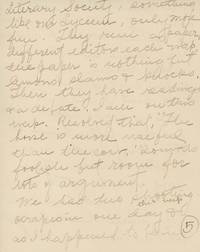 Literary Society, something
like our Lyceum, only more
fun. They run a paper,
different editors each week.
The paper is nothing but
lemons, slams & knocks.
Then they have readings
on a debate. I am on this
week. Resolved that, "The
horse is more useful
than the cow." Kind of
foolish but room for
lots of argument.
We had two shooting
this week
scrapes in one day &
as I happened to be
5